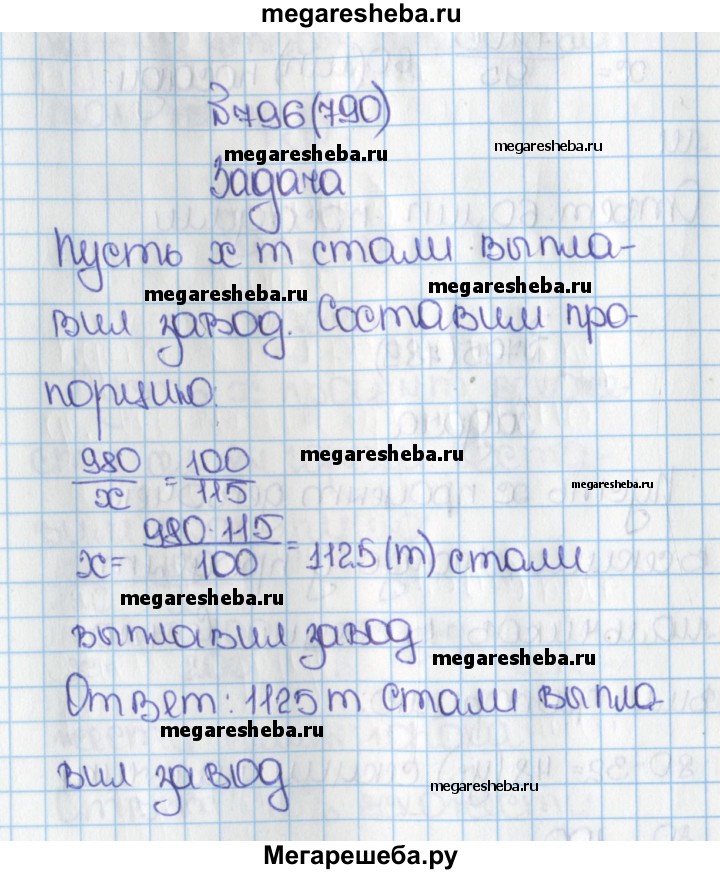 megaresheba.ru
№796(790)
megaresheba.ru
megaresheba.ru
Задача
Пусть x т стали выпла-
megaresheba.ru
megaresheba.ru
вил завод. Составим про-
порцию:
980/x = 100/115
megaresheba.ru
megaresheba.ru
x = 980·115/100 = 1125(т) стали
megaresheba.ru
выплавил завод
megaresheba.ru
Ответ: 1125 т стали выпла-
megaresheba.ru
вил завод
megaresheba.ru
Мегарешеба.ру